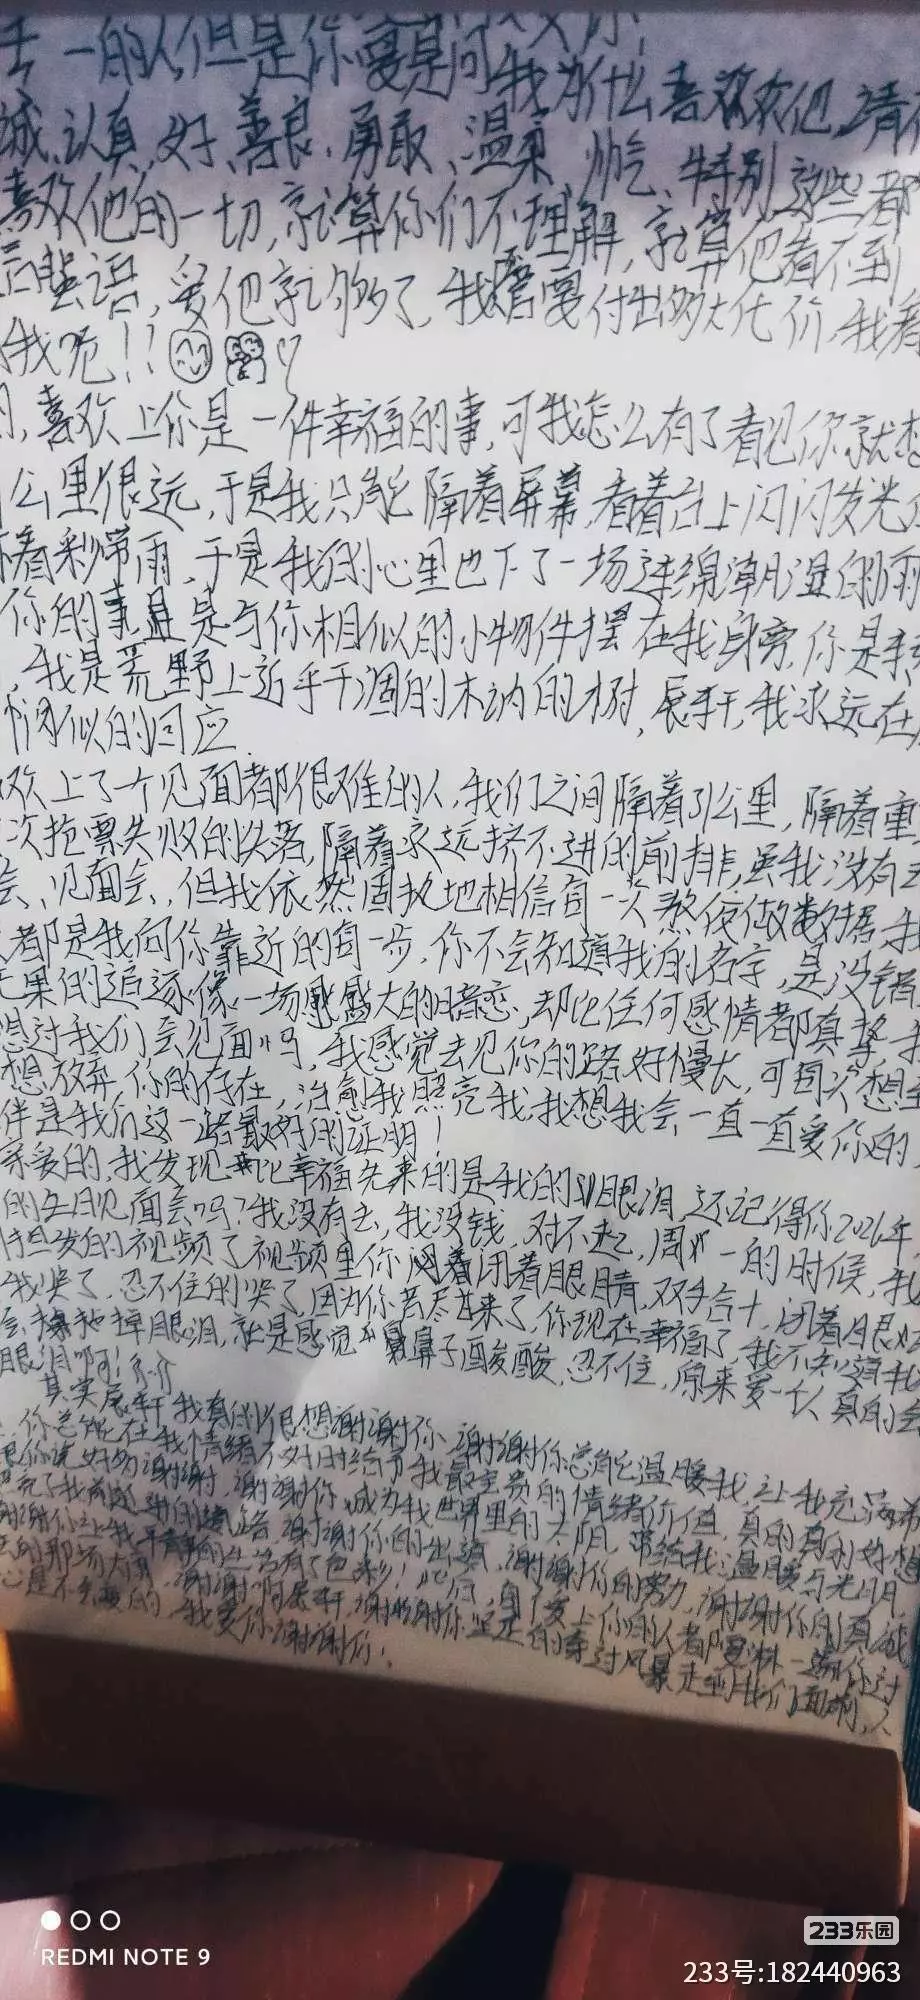 一的人,但是你要是问我为什么喜欢他,请
诚、认真、好、善良、勇敢、温柔、帅气、特别这些都
喜欢他的一切,就算你们不理解,就算他看不到
言蜚语,爱他就够了,我需要付出多大代价,我看
我呢!!
喜欢上你是一件幸福的事,可我怎么有了看见你就想
公里很远,于是我只能隔着屏幕,看着台上闪闪发光
着彩带雨,于是我的心里也下了一场连绵潮湿的雨
你的事,是与你相似的小物件摆在我身旁,你是
,我是荒野上近乎干涸的木讷的树,辰轩,我永远在
似的回应
欢上了一个见面都很难的人,我们之间隔着公里,隔着重
次抢票失败的失落,隔着永远挤不进的前排,虽我没有去
会、见面会,但我依然固执地相信每一次熬夜做数据我
都是我向你靠近的每一步,你不会知道我的名字,是没错
无果的追逐像一场盛大的暗恋,却比任何感情都真挚,
想过我们会见面吗,我感觉去见你的路好慢长,可每次想
想放弃,你的存在,治愈我照亮我,我想我会一直一直爱你的
伴是我们这一路最好的证明!
亲爱的,我发现比幸福先来的是我的眼泪,还记得你2026年
的生日见面会吗?我没有去,我没钱,对不起,周一的时候,我
发的视频了视频里你闭着眼睛,双手合十,闭着眼
我哭了,忍不住的哭了,因为你苦尽甘来了,你现在幸福了,我不知道我
会掉眼泪,就是感觉鼻子酸酸,忍不住,原来爱一个人真的会
眼泪啊!
其实辰轩我真的很想谢谢你,谢谢你总能温暖我,让我充满希
,你总能在我情绪不好时给予我最宝贵的情绪价值,真的真的好想
跟你说好多谢谢,谢谢你成为我世界里的太阳,带给我温暖与光明,
亮了我前进的道路,谢谢你的出现,谢谢你的努力,谢谢你的真诚
谢谢你让我平静的生活有了色彩!此后,每个爱上你的人都要淋一遍你过
的那场大雨,谢谢啊辰轩,谢谢你坚定的穿过风暴走到我们面前,
心是不会变的,我爱你谢谢你!
REDMI NOTE 9
233乐园
233号:182440963